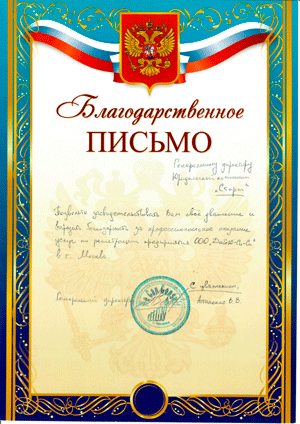 Благодарственное
ПИСЬМО
Генеральному директору
Юридической компании
"Старт"
Позвольте засвидетельствовать Вам своё уважение и
выразить благодарность за профессиональное оказание
услуг по регистрации предприятия ООО
в г. Москве
С уважением,
Генеральный директор В.В.